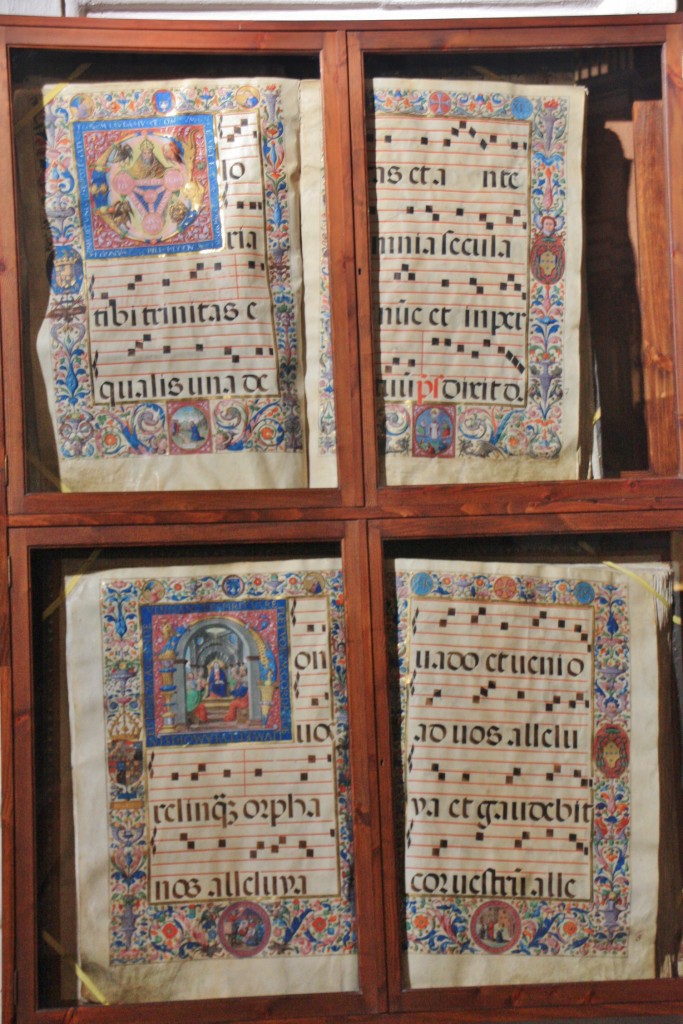 lo
ria
tibi trinitas e
qualis una de
as et a nte
mnia secula
nūc et in per
tuū ps dixit d.
on
uo
relinqz orpha
nos alleluya
uado et uenio
ad uos allelu
ya et gaudebit
cor uestrū alle